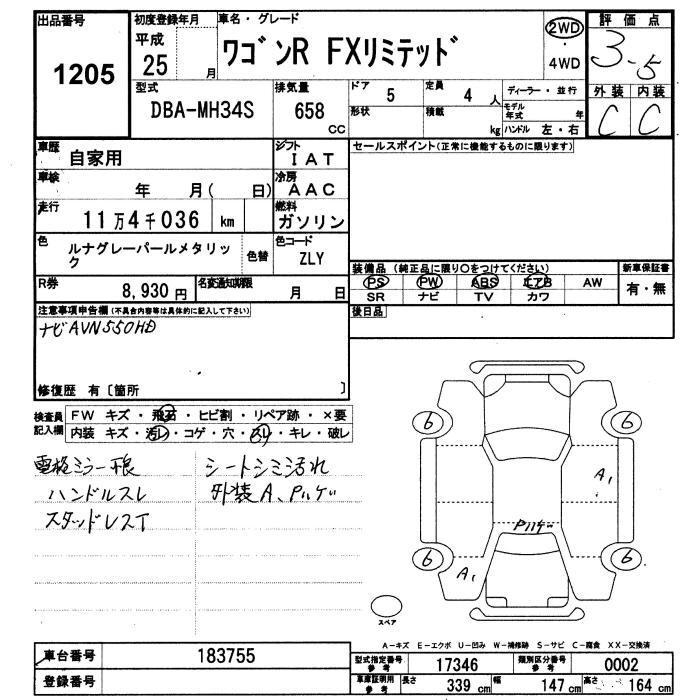 出品番号
1205
初度登録年月
平成
25 月
車名・グレード
ワゴンR FXリミテッド
2WD
4WD
評価点
3.5
外装 内装
C C
型式
DBA-MH34S
排気量
658
CC
ドア
5
定員
4 人
形状
積載
kg
ディーラー・並行
モデル年式 年
ハンドル 左・右
車歴
自家用
シフト
IAT
車検
年 月( 日)
冷房
AAC
走行
11万4千036 km
燃料
ガソリン
色
ルナグレーパールメタリック
色替
色コード
ZLY
R券
8,930円
名変通知期限
月 日
セールスポイント(正常に機能するものに限ります)
装備品(純正品に限り○をつけてください)
PS PW ABS エアB AW
SR ナビ TV カワ
新車保証書
有・無
後日品
注意事項申告欄(不具合内容等は具体的に記入して下さい)
ナビAVN550HD
修復歴 有〔箇所 〕
検査員記入欄
FW キズ・飛石・ヒビ割・リペア跡・×要
内装 キズ・汚レ・コゲ・穴・スレ・キレ・破レ
電格ミラー
ハンドルスレ
スタッドレスT
シートシミ汚れ
外装A、
6
6
A1
6
6
A1
スペア
A-キズ E-エクボ U-凹み W-補修跡 S-サビ C-腐食 XX-交換済
車台番号
183755
登録番号
型式指定番号
参考
17346
類別区分番号
参考
0002
車庫証明用
参考
長さ 339 cm
幅 147 cm
高さ 164 cm